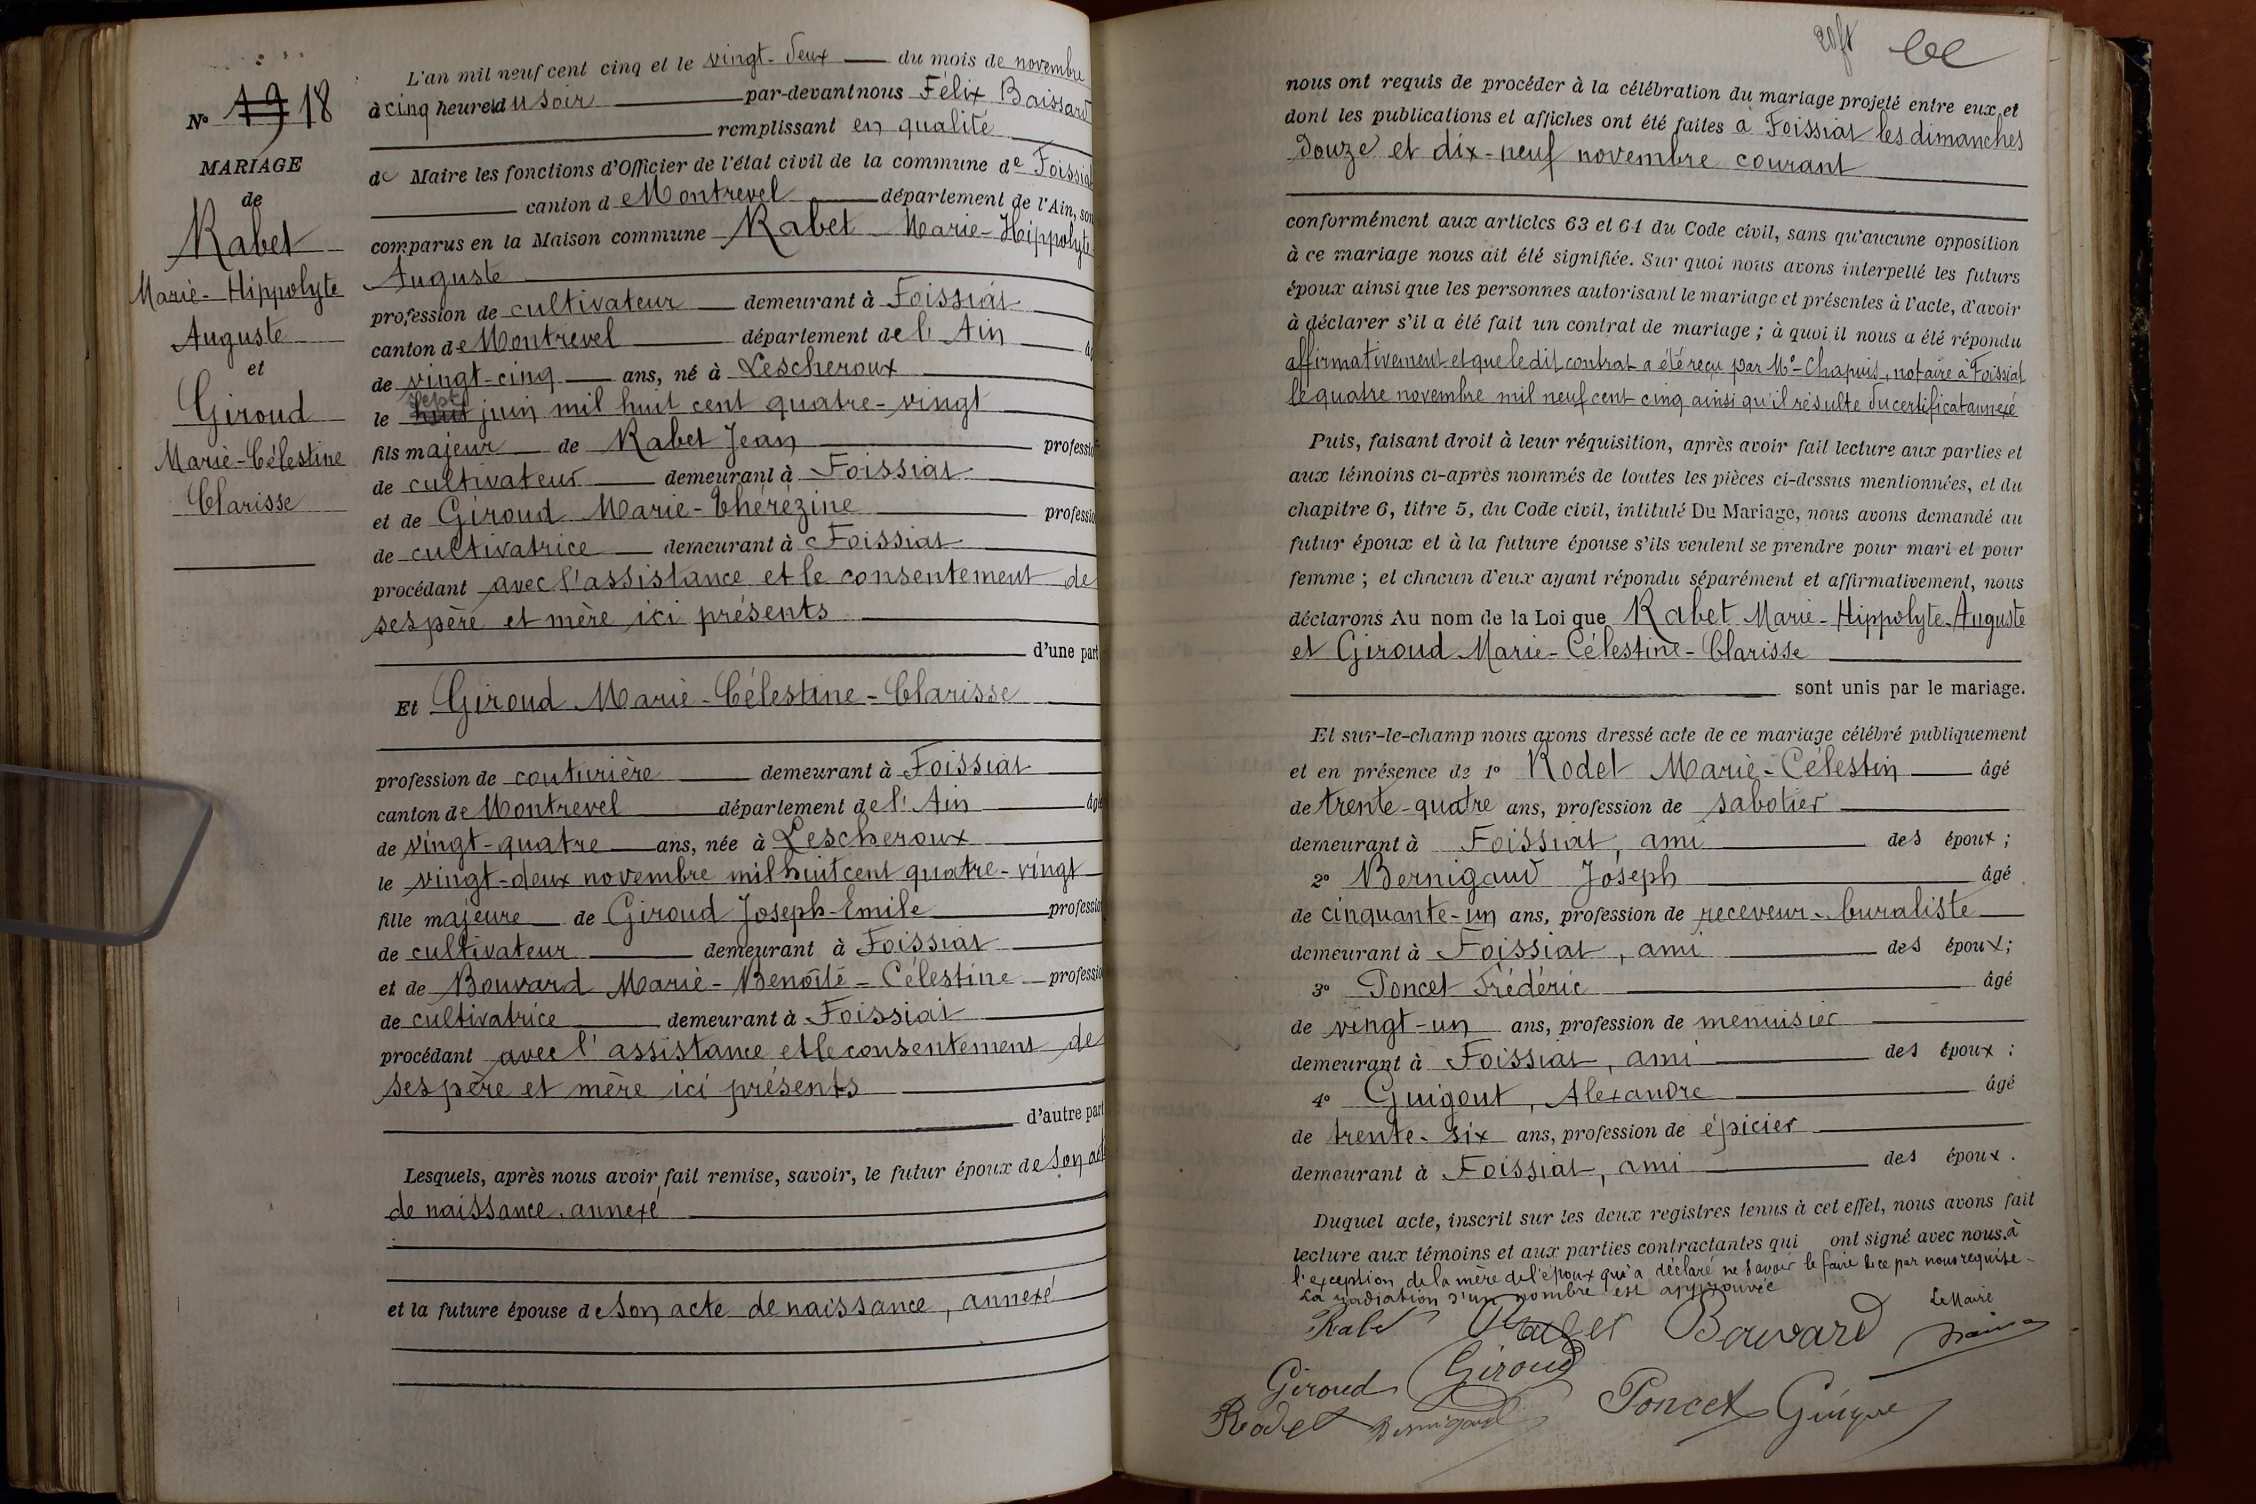 N° 19 18
MARIAGE
de
Rabet
Marie-Hippolyte
Auguste
et
Giroud
Marie-Célestine
Clarisse
L'an mil neuf cent cinq et le vingt-deux du mois de novembre
à cinq heures du soir par-devant nous Félix Baissard
remplissant en qualité
de Maire les fonctions d'Officier de l'état civil de la commune de Foissiat
canton de Montrevel département de l'Ain, son
comparus en la Maison commune Rabet Marie-Hippolyte
Auguste
profession de cultivateur demeurant à Foissiat
canton de Montrevel département de l'Ain
de vingt-cinq ans, né à Lescheroux
le huit sept juin mil huit cent quatre-vingt
fils majeur de Rabet Jean professio
de cultivateur demeurant à Foissiat
et de Giroud Marie-Thérézine professio
de cultivatrice demeurant à Foissiat
procédant avec l'assistance et le consentement de
ses père et mère ici présents
d'une part
Et Giroud Marie-Célestine-Clarisse
profession de couturière demeurant à Foissiat
canton de Montrevel département de l'Ain âgé
de vingt-quatre ans, née à Lescheroux
le vingt-deux novembre mil huit cent quatre-vingt
fille majeure de Giroud Joseph-Emile professio
de cultivateur demeurant à Foissiat
et de Bouvard Marie-Benoîte-Célestine professio
de cultivatrice demeurant à Foissiat
procédant avec l'assistance et le consentement de
ses père et mère ici présents
d'autre part
Lesquels, après nous avoir fait remise, savoir, le futur époux de son acte
de naissance, annexé
et la future épouse de son acte de naissance, annexé
nous ont requis de procéder à la célébration du mariage projeté entre eux, et
dont les publications et affiches ont été faites à Foissiat les dimanches
douze et dix-neuf novembre courant
conformément aux articles 63 et 64 du Code civil, sans qu'aucune opposition
à ce mariage nous ait été signifiée. Sur quoi nous avons interpellé les futurs
époux ainsi que les personnes autorisant le mariage et présentes à l'acte, d'avoir
à déclarer s'il a été fait un contrat de mariage ; à quoi il nous a été répondu
affirmativement et que le dit contrat a été reçu par Me Chapuis, notaire à Foissiat
le quatre novembre mil neuf cent cinq ainsi qu'il résulte du certificat annexé
Puis, faisant droit à leur réquisition, après avoir fait lecture aux parties et
aux témoins ci-après nommés de toutes les pièces ci-dessus mentionnées, et du
chapitre 6, titre 5, du Code civil, intitulé Du Mariage, nous avons demandé au
futur époux et à la future épouse s'ils veulent se prendre pour mari et pour
femme ; et chacun d'eux ayant répondu séparément et affirmativement, nous
déclarons Au nom de la Loi que Rabet Marie-Hippolyte-Auguste
et Giroud Marie-Célestine-Clarisse
sont unis par le mariage.
Et sur-le-champ nous avons dressé acte de ce mariage célébré publiquement
et en présence de 1° Rodet Marie-Célestin âgé
de trente-quatre ans, profession de sabotier
demeurant à Foissiat, ami des époux ;
2° Bernigaud Joseph âgé
de cinquante-un ans, profession de receveur-buraliste
demeurant à Foissiat, ami des époux ;
3° Poncet Frédéric âgé
de vingt-un ans, profession de menuisier
demeurant à Foissiat, ami des époux :
4° Guigout, Alexandre âgé
de trente-six ans, profession de épicier
demeurant à Foissiat, ami des époux.
Duquel acte, inscrit sur les deux registres tenus à cet effet, nous avons fait
lecture aux témoins et aux parties contractantes qui ont signé avec nous, à
l'exception de la mère de l'époux qui a déclaré ne savoir le faire de ce par nous requise.
La radiation d'un nombre est approuvée
Le Maire
Rabet Rabet Bouvard
Giroud Giroud
Rodet Bernigaud Poncet